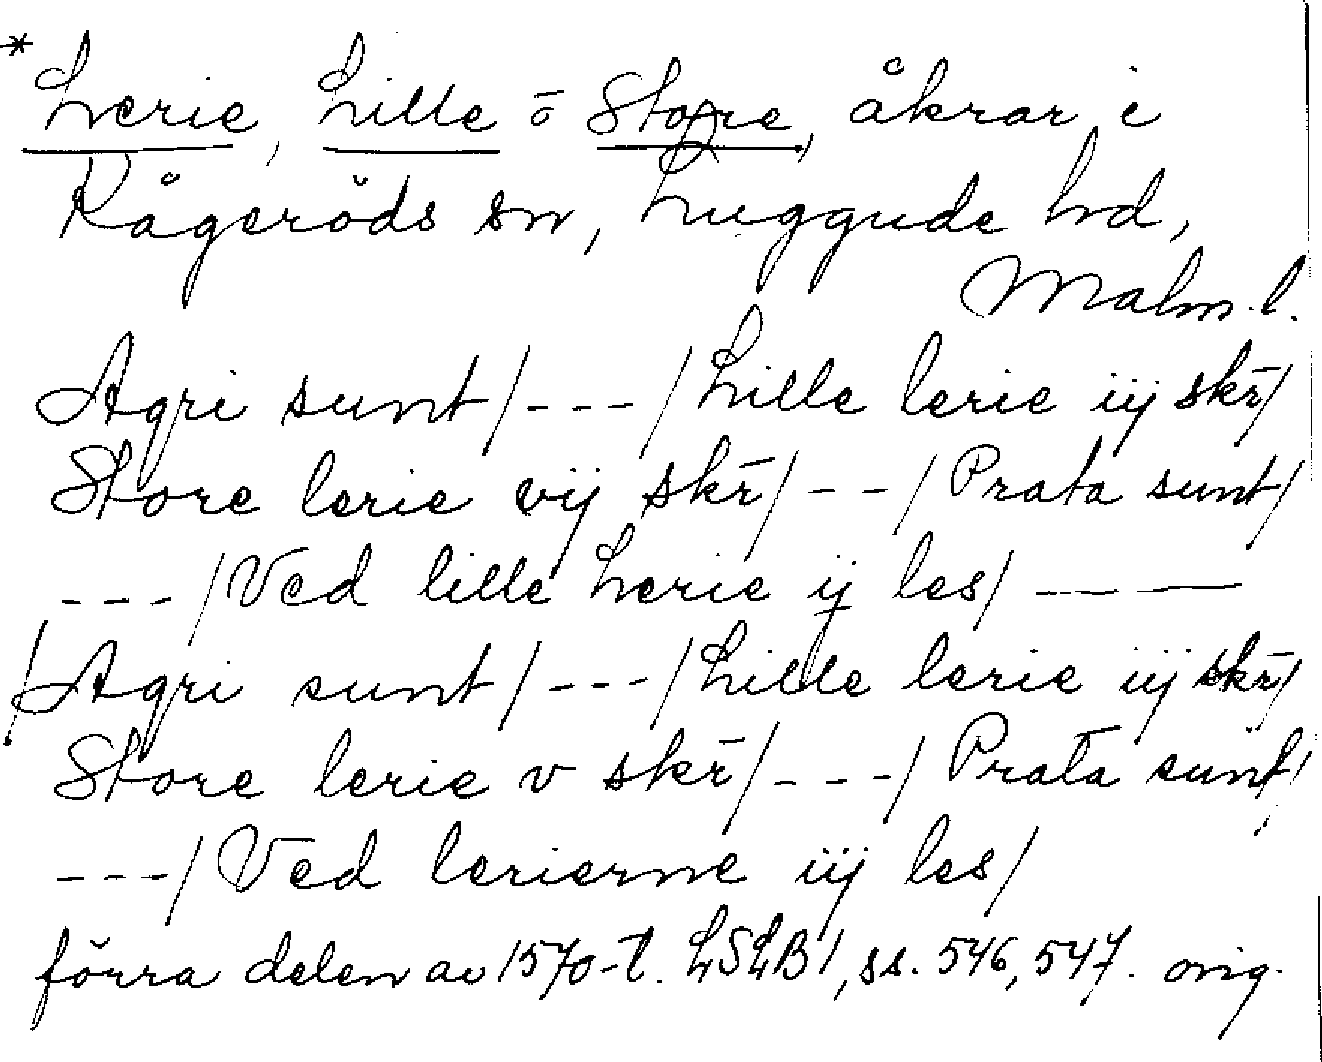 * Lerie, Lille o Store, åkrar i
Kågeröds sn, Luggude hd,
Malm.l.
Agri sunt/---/Lille lerie iij skr̄/
Store lerie vij skr̄/---/Prata sunt/
---/Ved lille Lerie ij les/-----
/Agri sunt/---/Lille lerie iij skr̄/
Store lerie v skr̄/---/Prata sunt/
---/Ved lerierne iij les/
förra delen av 1570-t. LSLB 1, ss. 546, 547. orig.